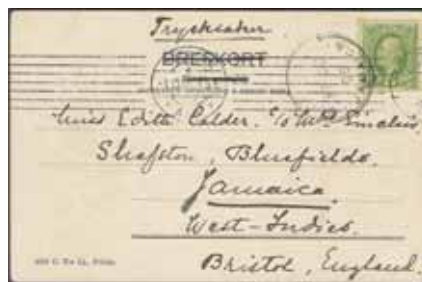 Trycksaker
BREFKORT
Miss Edith Calder. c/o Mrs Sinclair,
Shafston, Bluefields.
Jamaica
West-Indies.
Bristol, England.